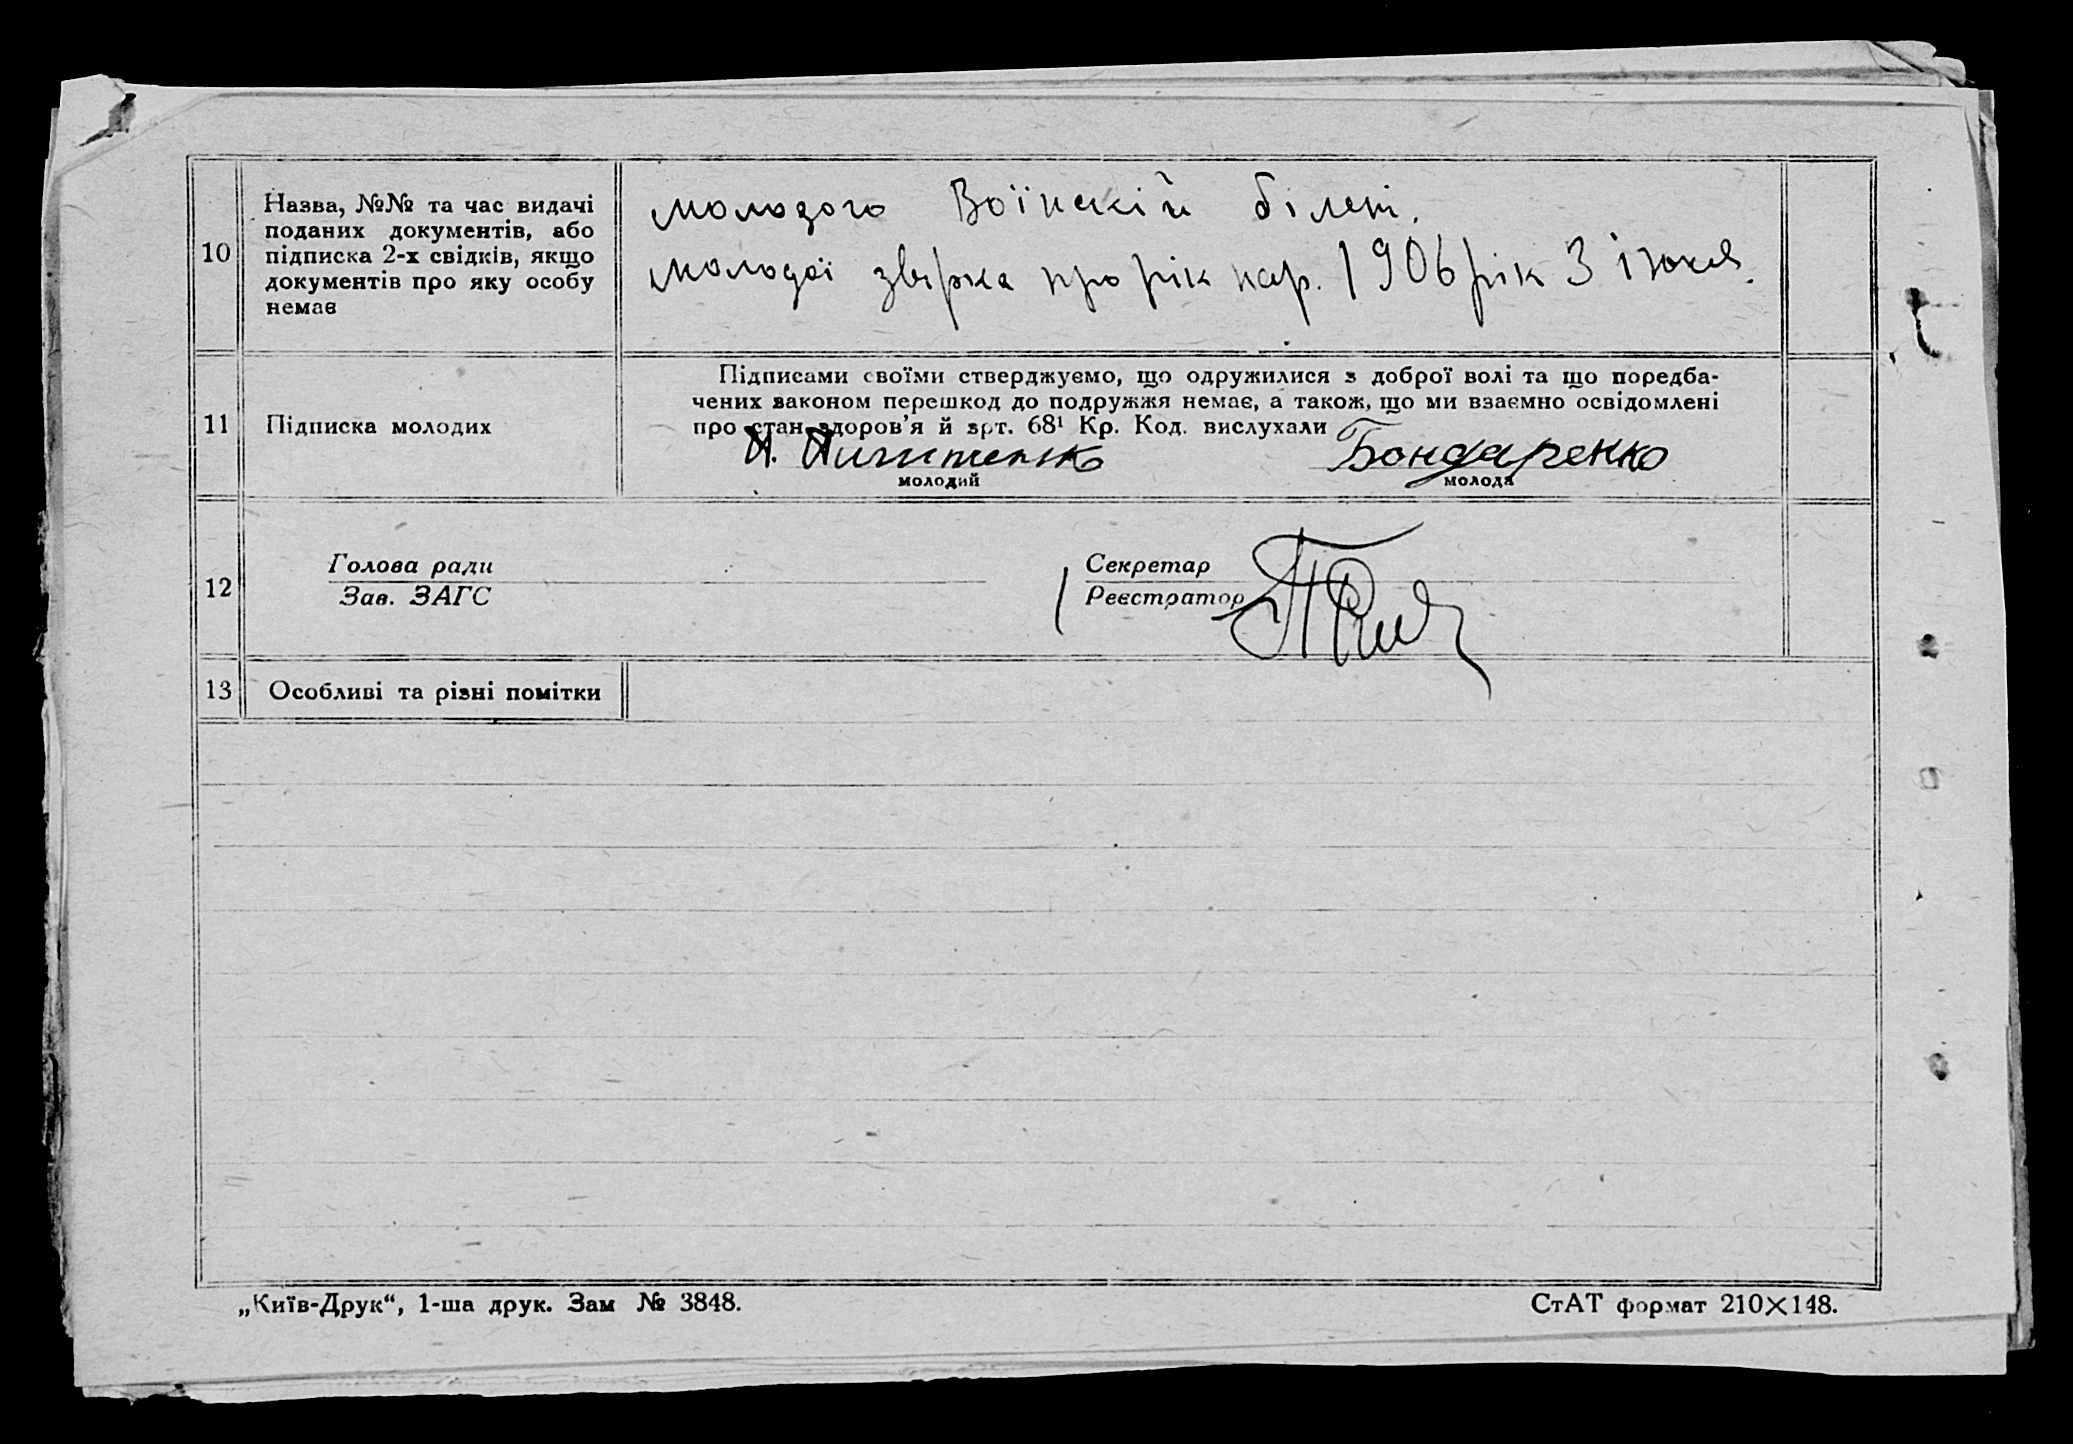 10
Назва, №№ та час видачі
поданих документів, або
підписка 2-х свідків, якщо
документів про яку особу
немає
молодого Воїнскій білет.
молодої звірка про рік нар. 1906 рік 3 іюля.
11
Підписка молодих
Підписами своїми стверджуємо, що одружилися з доброї волі та що поредба-
чених законом перешкод до подружжя немає, а також, що ми взаємно освідомлені
про стан здоров'я й арт. 68¹ Кр. Код. вислухали
Бондаренко
молодий
молода
12
Голова ради
Зав. ЗАГС
Секретар
Реєстратор
13
Особливі та різні помітки
„Київ-Друк“, 1-ша друк. Зам № 3848.
СтАТ формат 210×148.